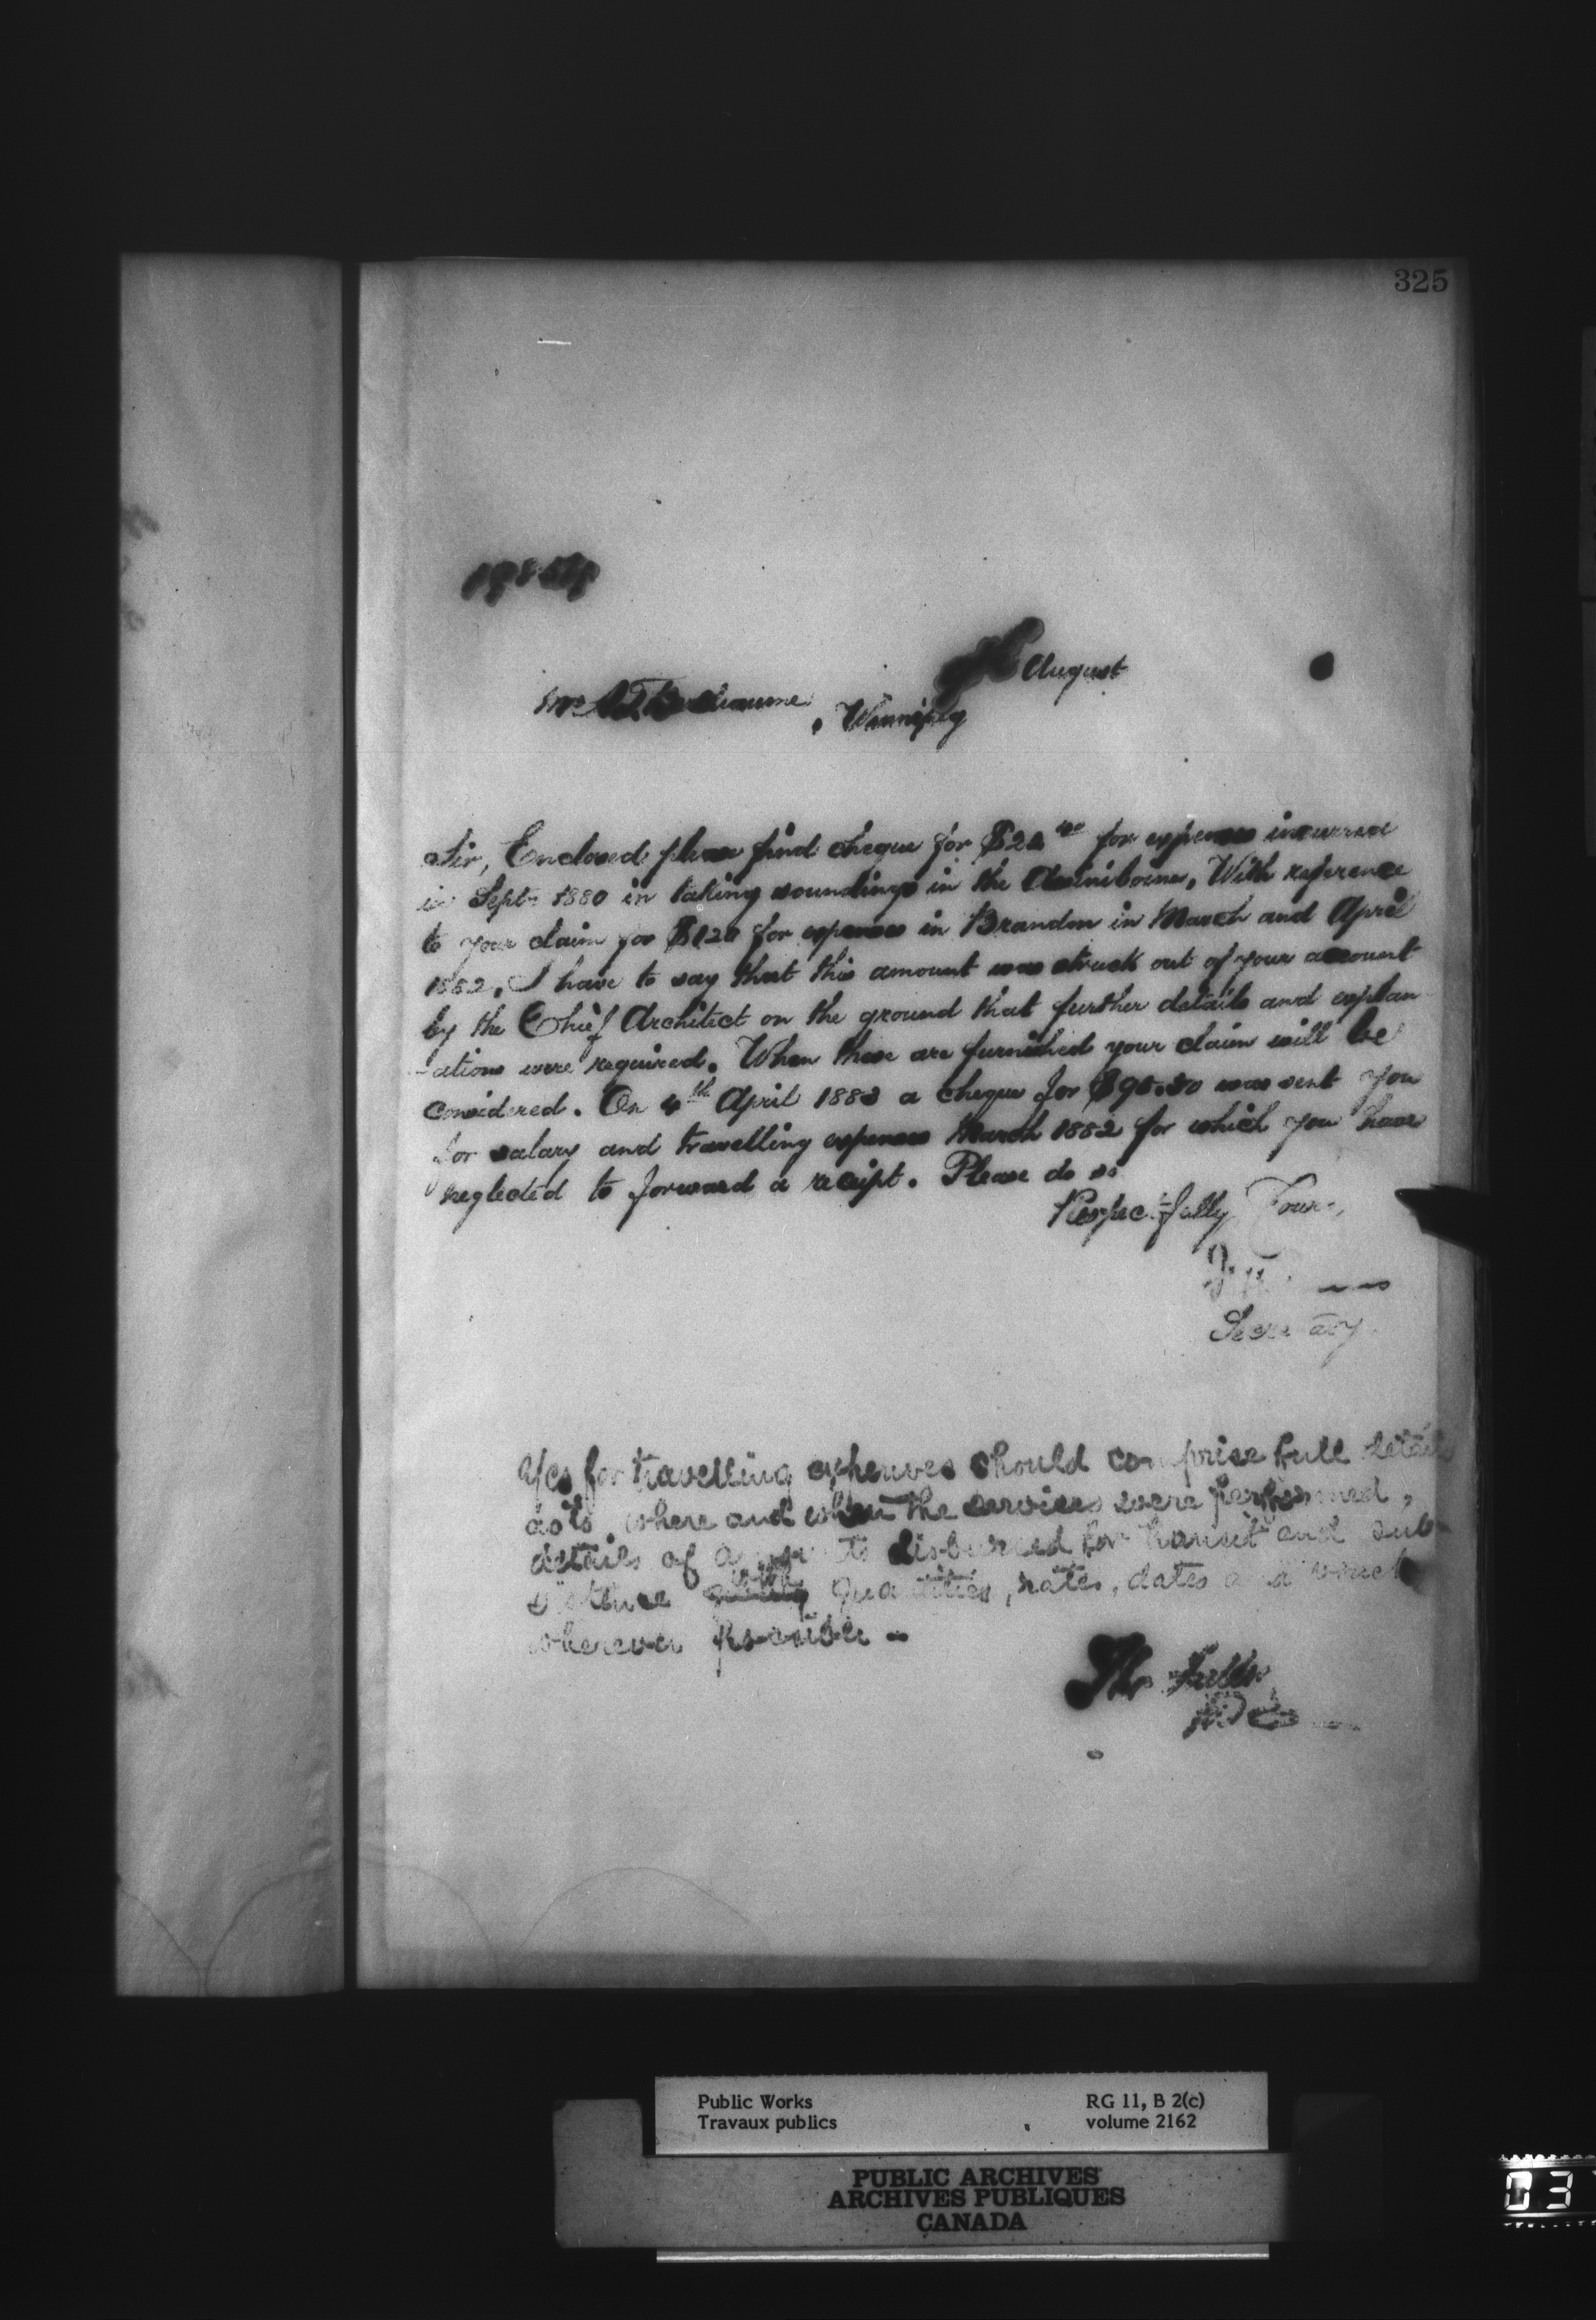 325
August
Winnipeg
Sir, Enclosed please find cheque for for expenses incurred
in Sept. 1880 in taking soundings in the Assiniboine. With reference
to your claim for $120 for expenses in Brandon in March and April
1882, I have to say that this amount was struck out of your account
by the Chief Architect on the ground that further details and explan
-ations were required. When these are furnished your claim will be
considered. On 4th April 1883 a cheque for was sent you
for salary and travelling expenses March 1882 for which you have
neglected to forward a receipt. Please do so
Respectfully Yours,
Secretary.
a/cs for travelling expenses should comprise full details
as to where and when the services were performed,
details of amounts disbursed for transit and sub-
sistence quantities, rates, dates and
wherever possible -
Public Works RG 11, B 2(c)
Travaux publics volume 2162
PUBLIC ARCHIVES
ARCHIVES PUBLIQUES
CANADA
03